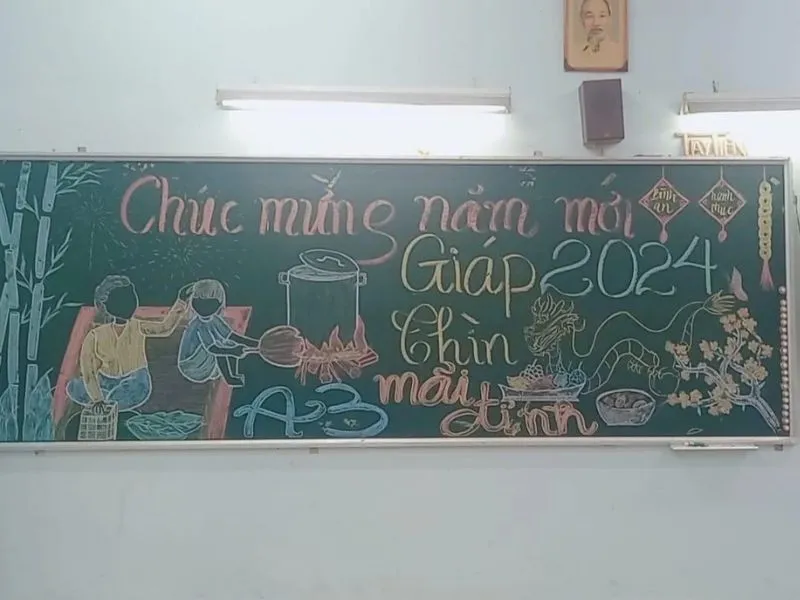 TÂY TIẾN
Chúc mừng năm mới
Bình an
hạnh phúc
Giáp 2024
Thìn
A3
mãi đỉnh